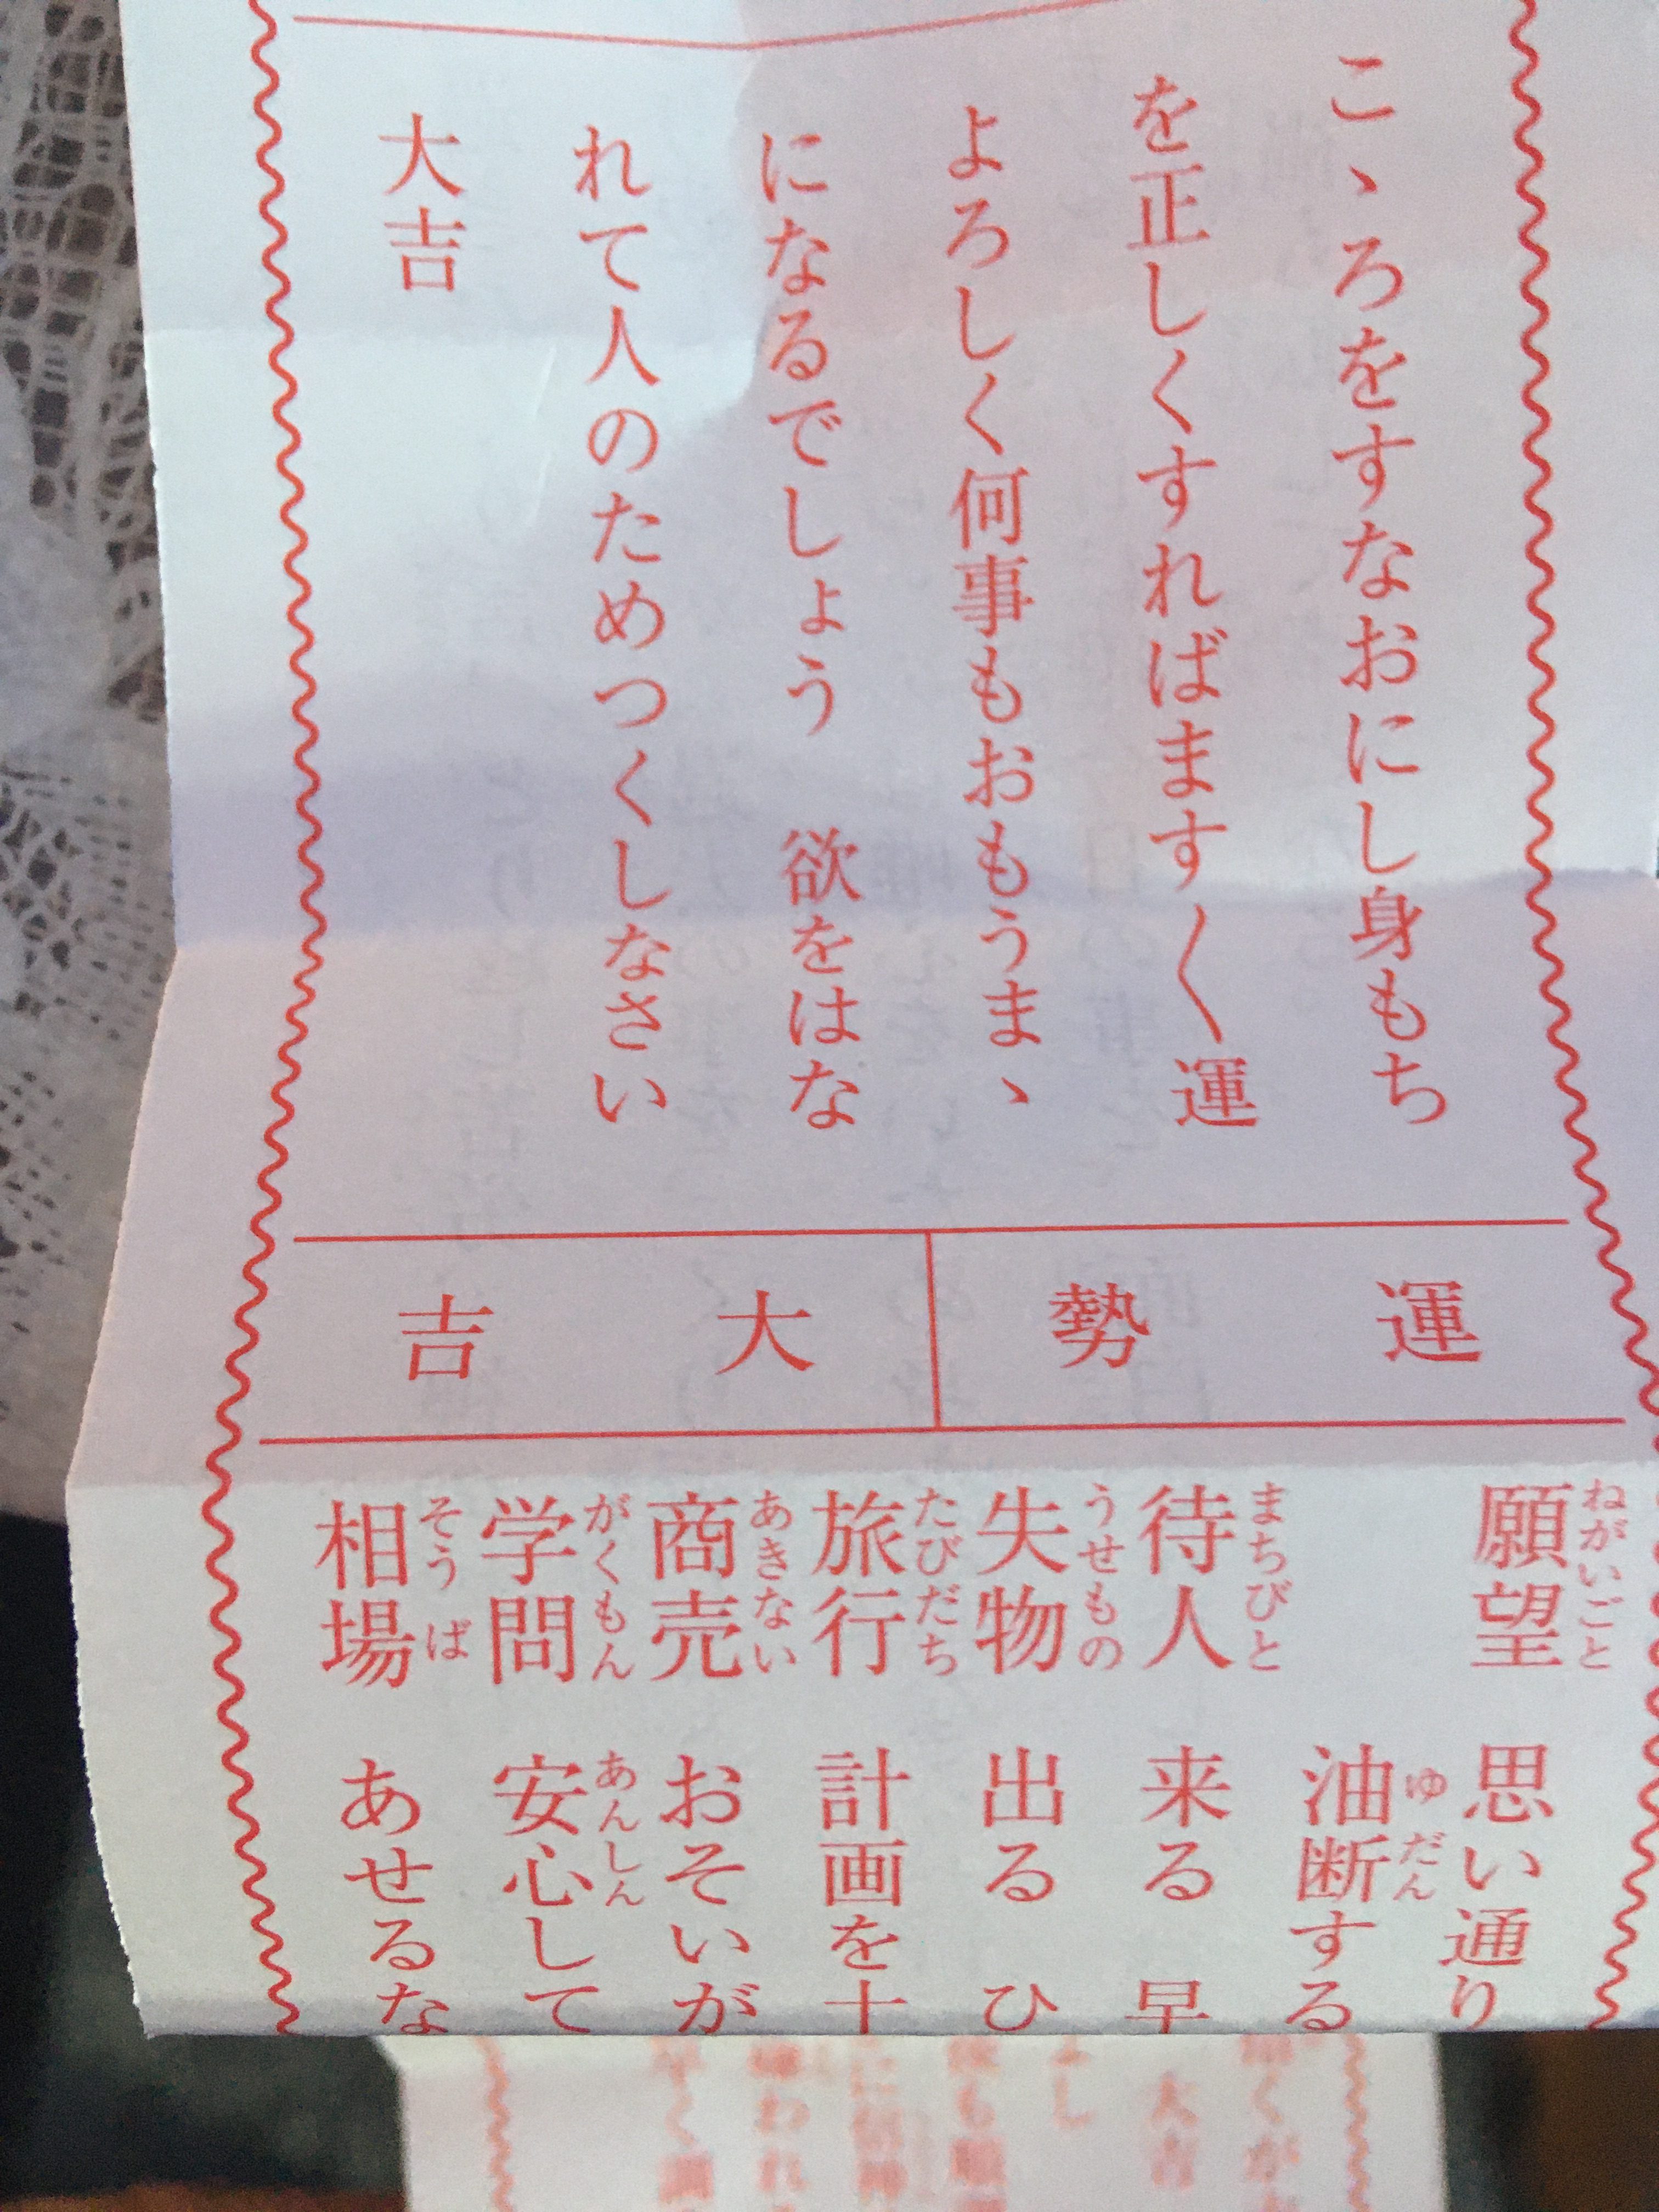 こゝろをすなおにし身もち
を正しくすればますく運
よろしく何事もおもうまゝ
になるでしょう　欲をはな
れて人のためつくしなさい
大吉
運勢
大吉
願望 ねがいごと 思い通り
油断する ゆだん
待人 まちびと 来る 早
失物 うせもの 出る ひ
旅行 たびだち 計画を十
商売 あきない おそいが
学問 がくもん 安心して あんしん
相場 そうば あせるな